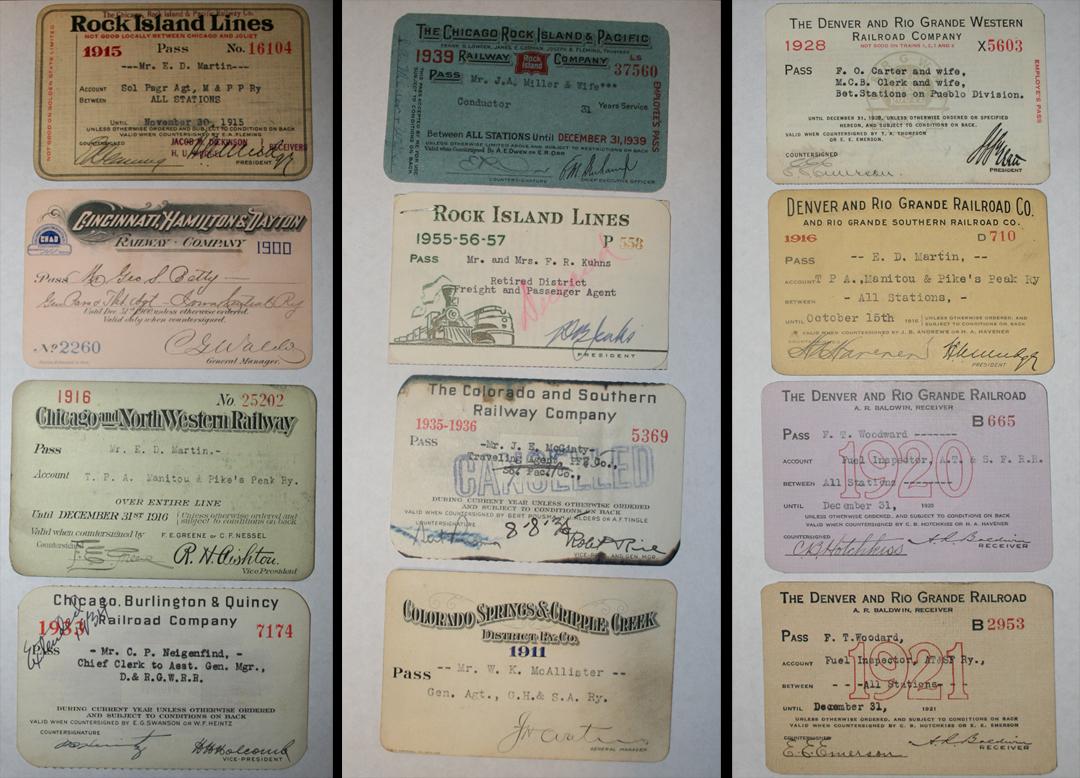 The Chicago, Rock Island & Pacific Railway Co.
Rock Island Lines
NOT GOOD LOCALLY BETWEEN CHICAGO AND JOLIET
1915 Pass No. 16104
---Mr. E. D. Martin---
ACCOUNT Sol Psgr Agt, M & P P Ry
BETWEEN ALL STATIONS
UNTIL November 30, 1915
UNLESS OTHERWISE ORDERED AND SUBJECT TO CONDITIONS ON BACK
VALID WHEN COUNTERSIGNED BY E.A. FLEMING
COUNTERSIGNED JACOB M. DICKINSON
H. U. RECEIVERS
PRESIDENT
NOT GOOD ON GOLDEN STATE LIMITED
CINCINNATI, HAMILTON & DAYTON
RAILWAY COMPANY 1900
CH&D
Pass Mr Geo S. Betty
Until Dec. 31st 1900 unless otherwise ordered.
Valid only when countersigned.
No 2260
General Manager.
1916 No. 25202
Chicago and North Western Railway
Pass Mr. E. D. Martin.-
Account T. P. A. Manitou & Pike's Peak Ry.
OVER ENTIRE LINE
Until DECEMBER 31ST 1916 Unless otherwise ordered and
subject to conditions on back
Valid when countersigned by F. E. GREENE or C. F. NESSEL
Countersigned
R. H. Aishton.
Vice President
Chicago, Burlington & Quincy
Railroad Company
1933 7174
Pass
- Mr. C. P. Neigenfind, -
Chief Clerk to Asst. Gen. Mgr.,
D.& R.G.W.R.R.
DURING CURRENT YEAR UNLESS OTHERWISE ORDERED
AND SUBJECT TO CONDITIONS ON BACK
VALID WHEN COUNTERSIGNED BY E.G. SWANSON OR W.F. HEINTZ
COUNTERSIGNATURE
VICE-PRESIDENT
THE CHICAGO ROCK ISLAND & PACIFIC
FRANK O. LOWDEN, JAMES E. GORMAN, JOSEPH B. FLEMING, TRUSTEES
1939 RAILWAY Rock Island COMPANY LS
37560
PASS Mr. J.A. Miller & Wife***
Conductor 31 Years Service
Between ALL STATIONS Until DECEMBER 31, 1939
UNLESS OTHERWISE LIMITED ABOVE AND SUBJECT TO RESTRICTIONS ON BACK
Valid when Countersigned by A.E. OWEN or E.R. ORR
COUNTERSIGNATURE CHIEF EXECUTIVE OFFICER
EMPLOYEE'S PASS
ROCK ISLAND LINES
1955-56-57 P 558
PASS Mr. and Mrs. F. R. Kuhns
Retired District
Freight and Passenger Agent
Deceased
PRESIDENT
The Colorado and Southern
Railway Company
1935-1936
PASS 5369
-Mr. J. E. McGinty-
Traveling Agent, PFE Co.,
CANCELLED
DURING CURRENT YEAR UNLESS OTHERWISE ORDERED
AND SUBJECT TO CONDITIONS ON BACK
COUNTERSIGNATURE
Robt Rice
VICE-PRES. AND GEN. MGR.
COLORADO SPRINGS & CRIPPLE CREEK
DISTRICT RY. CO.
1911
Pass -- Mr. W. K. McAllister --
Gen. Agt., G.H.& S.A. Ry.
GENERAL MANAGER
THE DENVER AND RIO GRANDE WESTERN
RAILROAD COMPANY
1928 NOT GOOD ON TRAINS 1, 2, 7 AND 8 X5603
PASS F. O. Carter and wife,
M.C.B. Clerk and wife,
Bet.Stations on Pueblo Division.
UNTIL DECEMBER 31, 1928, UNLESS OTHERWISE SPECIFIED
HEREON, AND SUBJECT TO CONDITIONS ON BACK.
VALID WHEN COUNTERSIGNED BY T. A. THOMPSON
OR E. E. EMERSON.
COUNTERSIGNED
E. E. Emerson.
PRESIDENT
EMPLOYE'S PASS
DENVER AND RIO GRANDE RAILROAD CO.
AND RIO GRANDE SOUTHERN RAILROAD CO.
1916 D 710
PASS -- E. D. Martin, --
ACCOUNT T P A., Manitou & Pike's Peak Ry
BETWEEN - All Stations, -
UNTIL October 15th 1916 UNLESS OTHERWISE ORDERED, AND
SUBJECT TO CONDITIONS ON BACK
VALID WHEN COUNTERSIGNED BY J. B. ANDREWS OR H. A. HAVENER
H. A. Havener
PRESIDENT
THE DENVER AND RIO GRANDE RAILROAD
A. R. BALDWIN, RECEIVER
B 665
PASS F. T. Woodward -------
1920
ACCOUNT Fuel Inspector, A.T. & S. F. R.R.
BETWEEN All Stations --------
UNTIL December 31, 1920
UNLESS OTHERWISE ORDERED, AND SUBJECT TO CONDITIONS ON BACK
VALID WHEN COUNTERSIGNED BY C. B. HOTCHKISS OR H. A. HAVENER
COUNTERSIGNED
C B Hotchkiss A. R. Baldwin
RECEIVER
THE DENVER AND RIO GRANDE RAILROAD
A. R. BALDWIN, RECEIVER
B 2953
PASS F. T. Woodard,
1921
ACCOUNT Fuel Inspector, AT&SF Ry.,
BETWEEN - - -All Stations- - -
UNTIL December 31, 1921
UNLESS OTHERWISE ORDERED, AND SUBJECT TO CONDITIONS ON BACK
VALID WHEN COUNTERSIGNED BY C. B. HOTCHKISS OR E. E. EMERSON
COUNTERSIGNED
E. E. Emerson A. R. Baldwin
RECEIVER